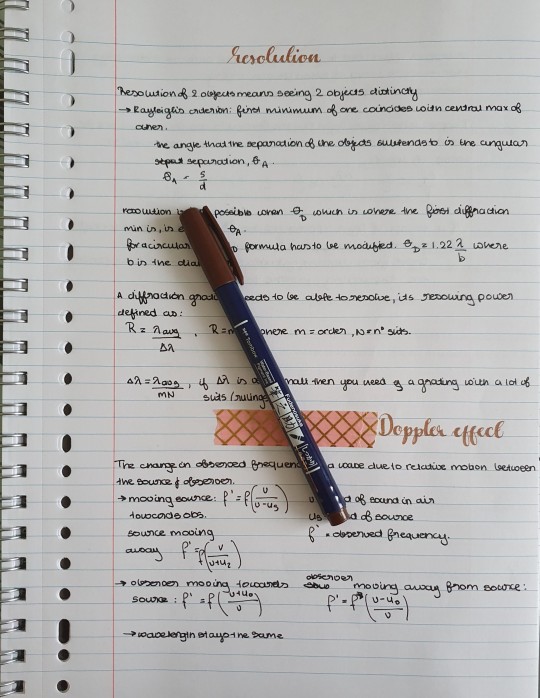 resolution
Resolution of 2 objects means seeing 2 objects distinctly
→ Rayleigh's criterion: first minimum of one coincides with central max of
other.
the angle that the separation of the objects subtends to is the angular
separation, θ_A.
θ_A = s/d
resolution is possible when θ_D which is where the first diffraction
min is, is θ_A.
for a circular formula has to be modified. θ_D = 1.22 λ/b where
b is the dia
A diffraction grat needs to be able to resolve, its resolving power
defined as:
R = λavg/Δλ , R = m where m = order, N = n° slits.
Δλ = λavg/mN , if Δλ is small then you need a grating with a lot of
slits (rulings
Doppler effect
The change in observed frequenc a wave due to relative motion between
the source & observer.
→ moving source: f' = f(v/v-us) v d of sound in air
towards obs. us d of source
source moving f' = observed frequency.
away f' = f(v/v+u2)
→ observer moving towards observer moving away from source:
source : f' = f(v+uo/v) f' = f(v-uo/v)
→ wavelength stays the same
Tombow